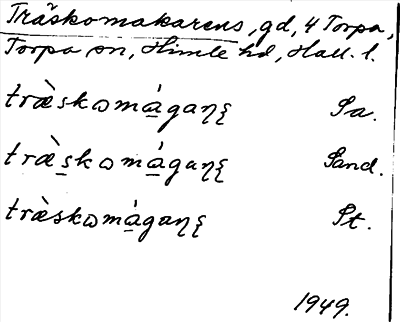 Träskomakarens, gd, 4 Torpa,
Torpa sn, Himle hd, Hall. l.
træ̀skωmá̱gaŋξ Sa.
træ̀s̱kωmá̱gaŋξ Sand.
træ̀skωmá̱gaŋξ St.
1949.